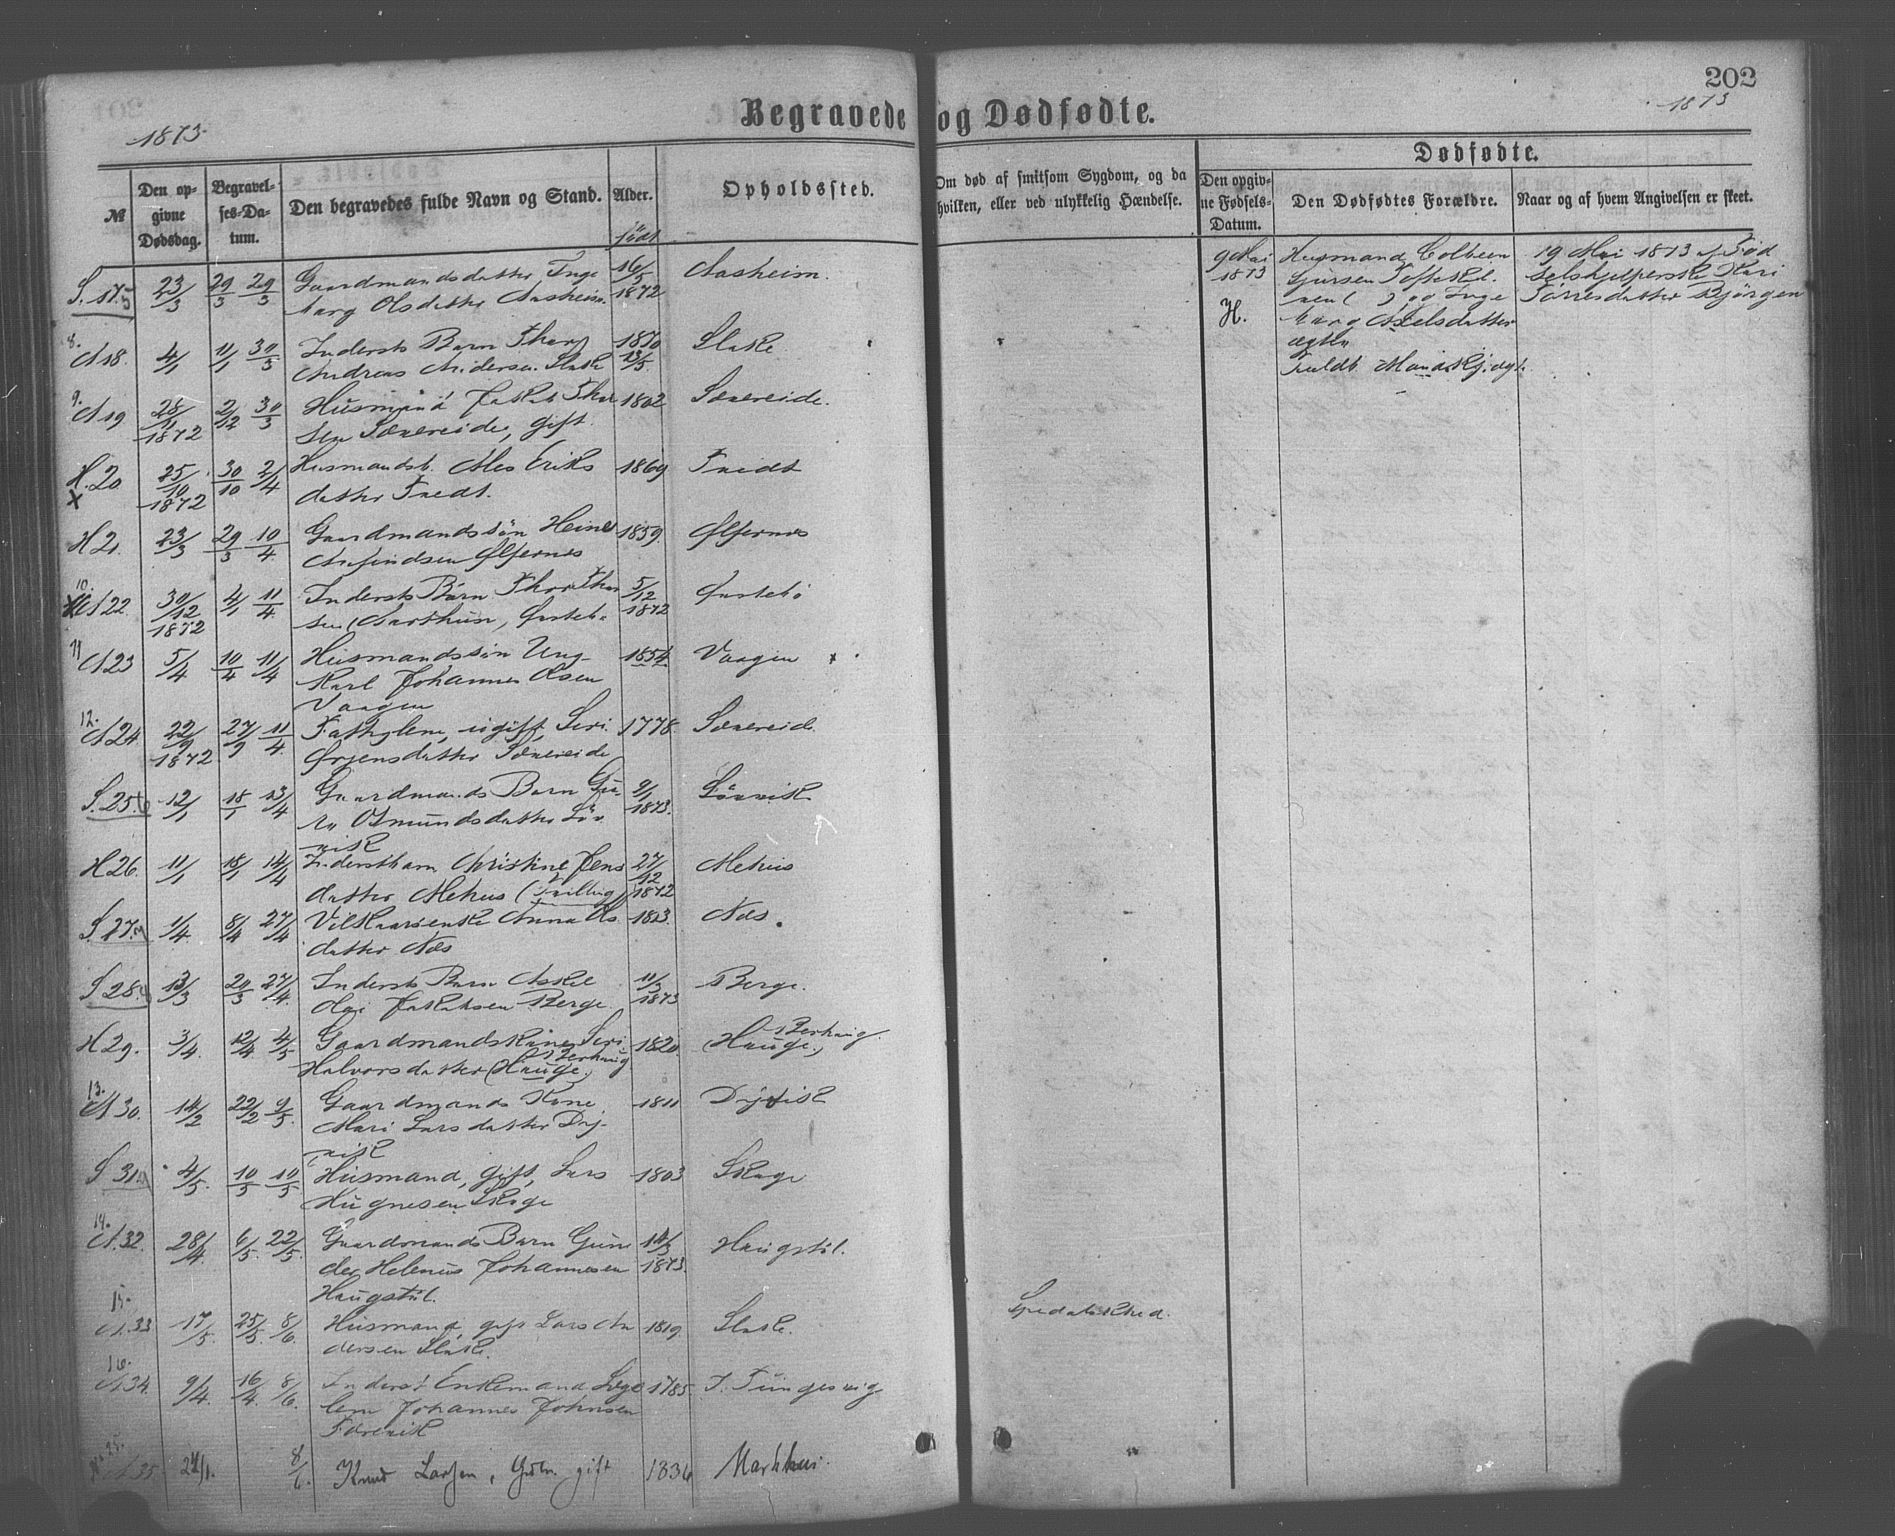 202
1873
1873
Begravede og Dødfødte.
№
Den opgivne Dødsdag.
Begravelses-Datum.
Den begravedes fulde Navn og Stand.
Alder.
født
Opholdssted.
Om død af smitsom Sygdom, og da hvilken, eller ved ulykkelig Hændelse.
Dødfødte.
Den opgivne Fødsels-Datum.
Den Dødfødtes Forældre.
Naar og af hvem Angivelsen er skeet.
S. 17. 23/3 29/3 29/3 Gaardmandsdatter Inge 16/5 1872 Aasheim.
borg Olsdatter Aasheim.
8.
A 18. 4/1 11/1 30/3 Inderste Barn Thor 1870 13/5 Slake.
Andreas Andersen Slake
9.
A 19 28/11 1872 2/12 30/3 Husmand Jakob Thor 1802 Sævereide.
sen Sævereide, gift.
H. 20. 25/10 1872 30/10 2/4 Husmandsb. Ales Eriks 1869 Tvedt
datter Tvedt.
H 21 23/3 29/3 10/4 Gaardmandssøn Heine 1859. Ølfernes
Anfindsen Ølfernes
10.
A 22. 30/12 1872 4/1 11/4 Inderste Barn Thor Thor 5/12 1872 Østebø
sen (Aarthun, Østebø
11
A 23 5/4 10/4 11/4 Husmandssøn Ung- 1854. Vaagen
karl Johannes Olsen
Vaagen
12.
A 24 22/9 1872 27/9 11/4 Fattiglem, ugift, Siri 1778. Sævereide
Ørjensdatter Sævereide
S. 25. 12/1 18/1 13/4 Gaardmands Barn Gu- 9/1 1873. Løvvik
ro Osmundsdatter Løv
vik
H 26. 11/1 18/1 14/4 Inderstbarn Christine Jens 27/12 1872 Mehus
datter Mehus (Tvilling)
S. 27. 1/4. 8/4 27/4 Vilkaarsenke Anna Ols 1823. Næs.
datter Næs
S 28. 13/3 20/3 27/4. Inderste Barn Askil 11/3 1873 Berge.
Olai Jakobsen Berge
H 29. 3/4. 12/4 4/5 Gaardmandskone Siri 1820. Hauge, Berhaug.
Halvorsdatter (Hauge, Berhaug
13.
A 30. 14/2 22/2 9/5. Gaardmands Kone 1811 Dryvik
Mari Larsdatter Dry-
vik
S 31. 4/5. 10/5 10/5 Husmand, gift, Lars 1803 Skoge
Hugnesen Skoge
14.
A. 32. 28/4. 6/5. 22/5. Gaardmands Barn Gun 14/3 1873. Haugstøl.
der Helenus Johannesen
Haugstøl.
15.
A. 33 17/5. 25/5. 8/6. Husmand, gift Lars An 1819 Slake. Spedalskhed.
dersen Slake.
16.
A 34. 9/4. 16/4. 8/6. Inderst Enkemand Læg 1785. I. Tungesvig
lem Johannes Johnsen
Førevik
A 35 24/1. 8/6. Knud Larsen, Gdbr. gift 1836 Markhus.
9 Mai 1873
H.
Husmand Colbeen
Gursen
nen ( ) og Inge
borg Axelsdatter
ægte
Fuldb. Mandskj. ægt.
19 Mai 1873 af Fød
selshjelperske Kari
Torresdatter Bjørgen